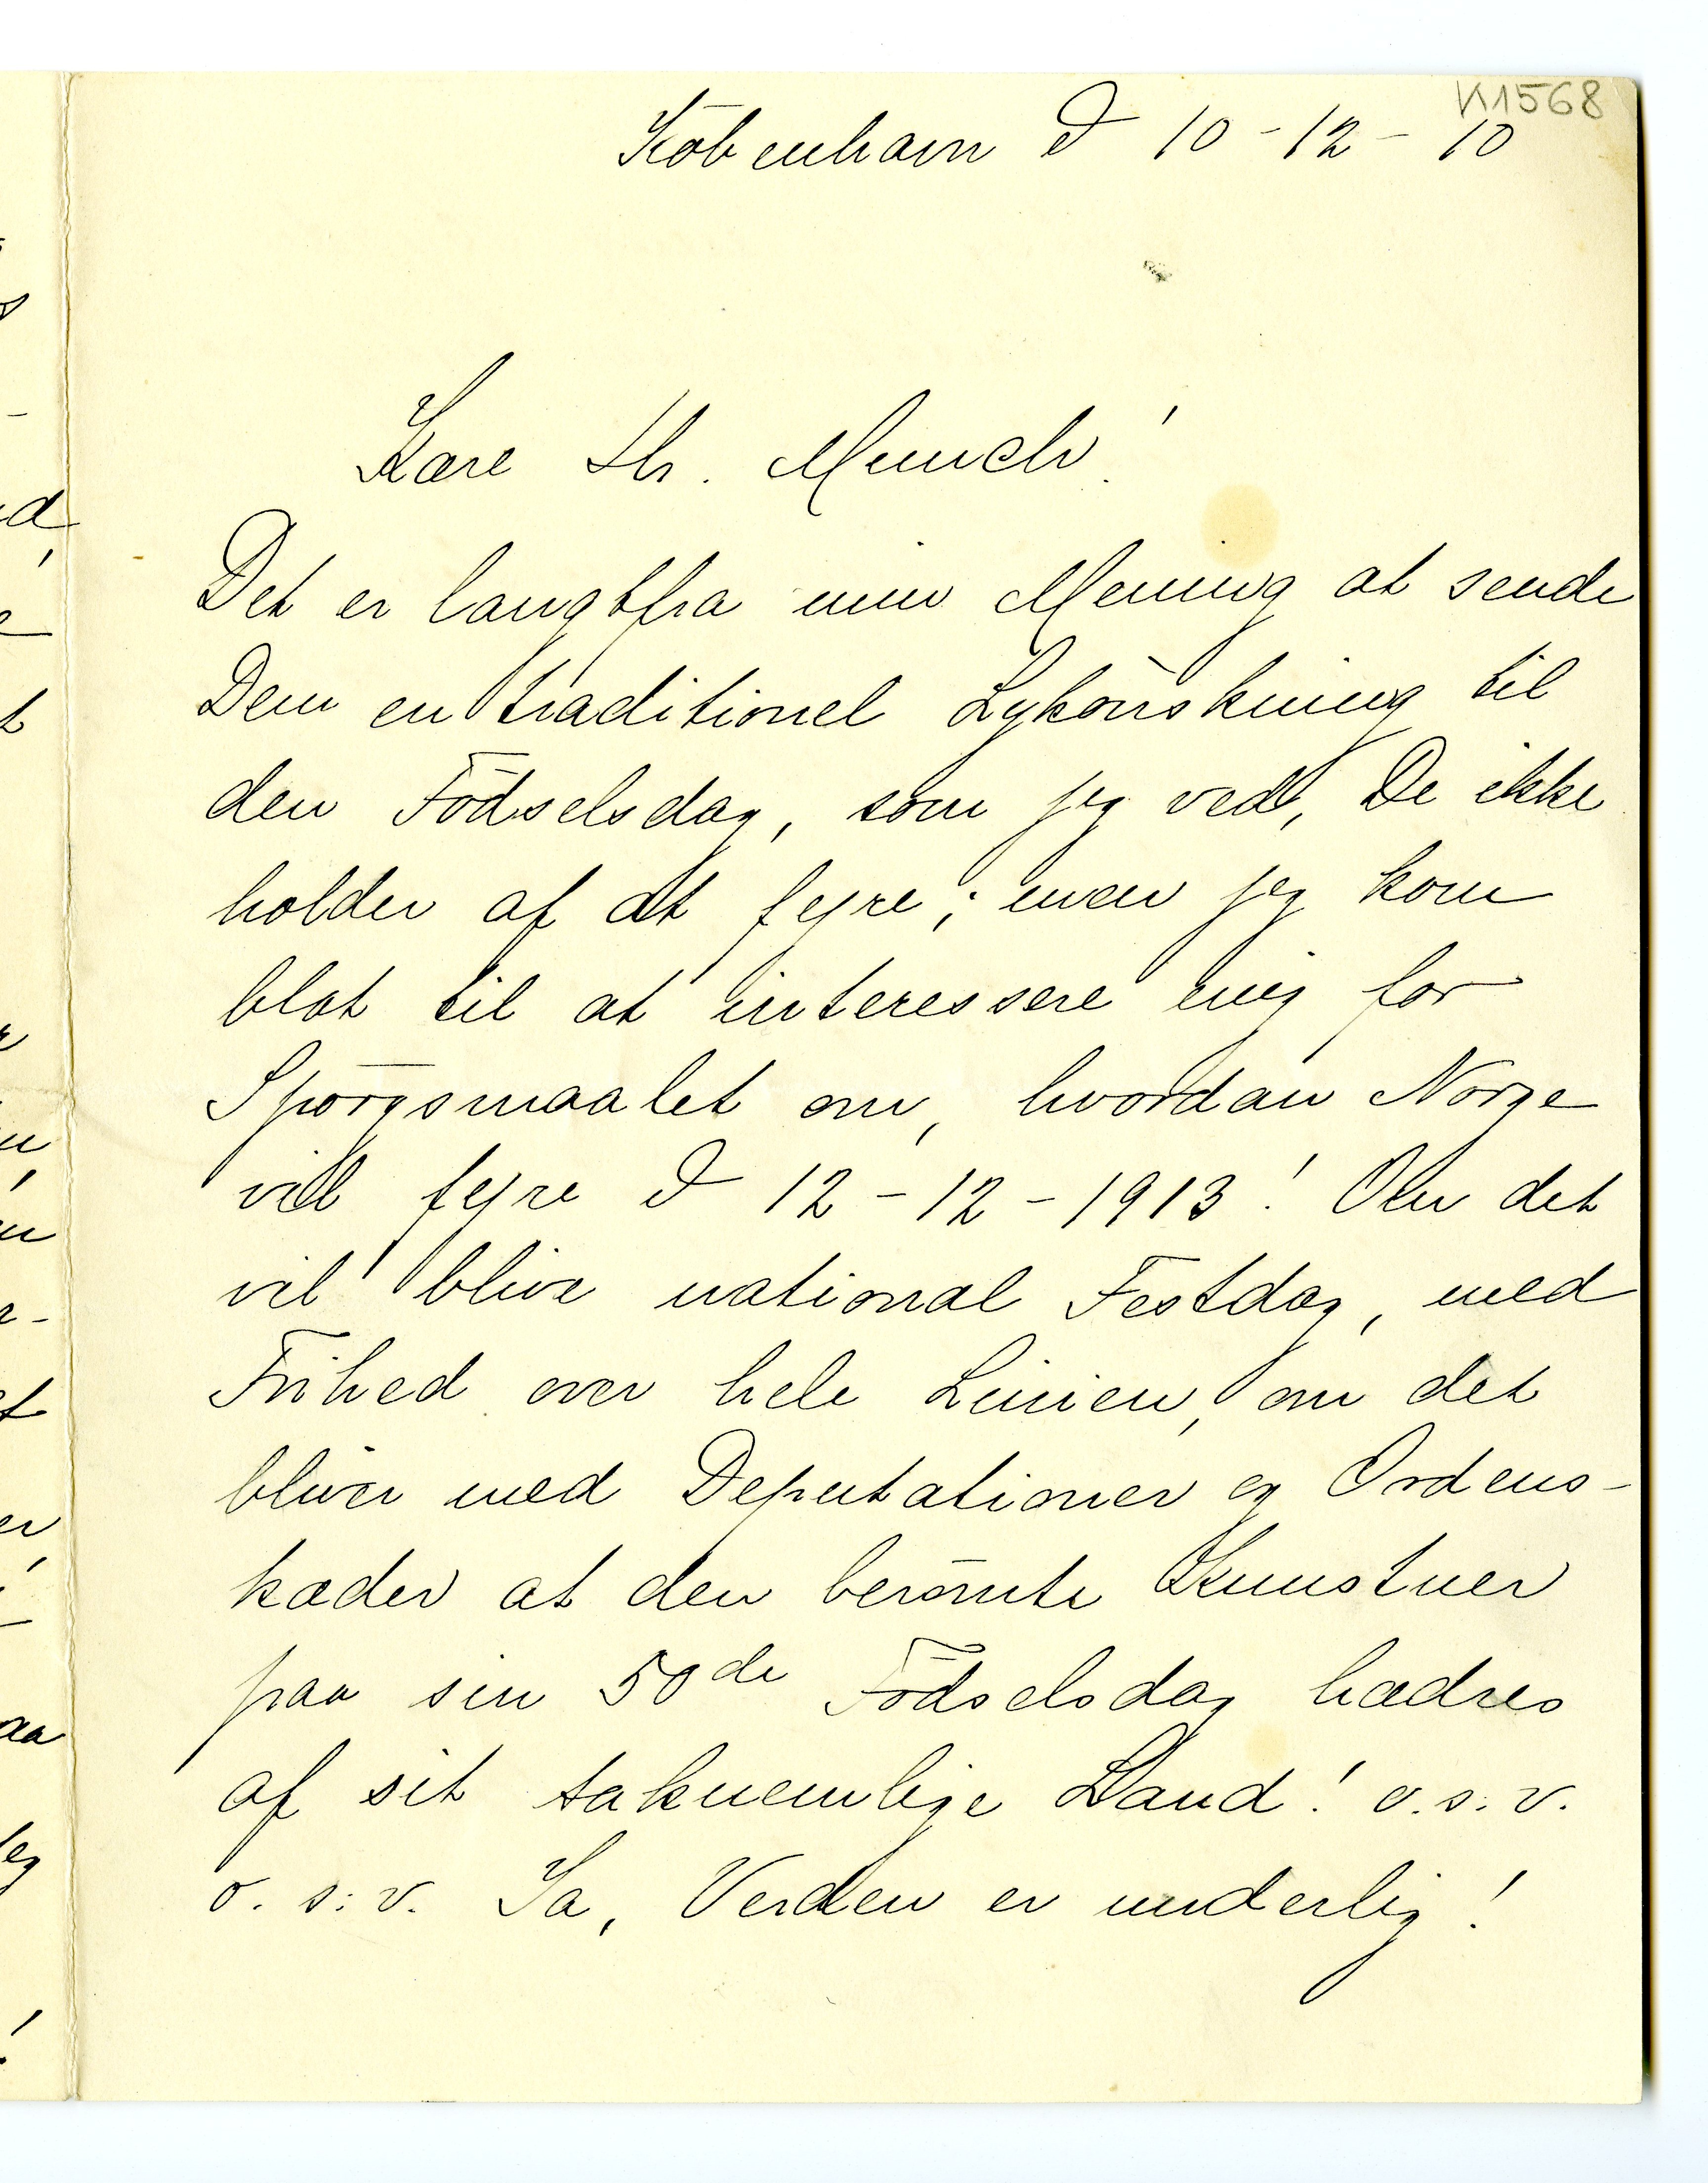 K1568
København d 10-12-10
Kære Hr. Munch!
Det er langtfra min Mening at sende
Dem en traditionel Lykønskning til
den Fødselsdag, som jeg ved, De ikke
holder af at fejre; men jeg kom
blot til at interessere mig for
Spørgsmaalet om, hvordan Norge
vil fejre d 12-12-1913! Om det
vil blive national Festdag, med
Frihed over hele Linien, om det
bliver med Deputationer og Ordens-
kæder at den berømte Kunstner
paa sin 50de Fødselsdag hædres
af sit taknemlige Land! o.s.v.
o.s.v. Ja, Verden er underlig!